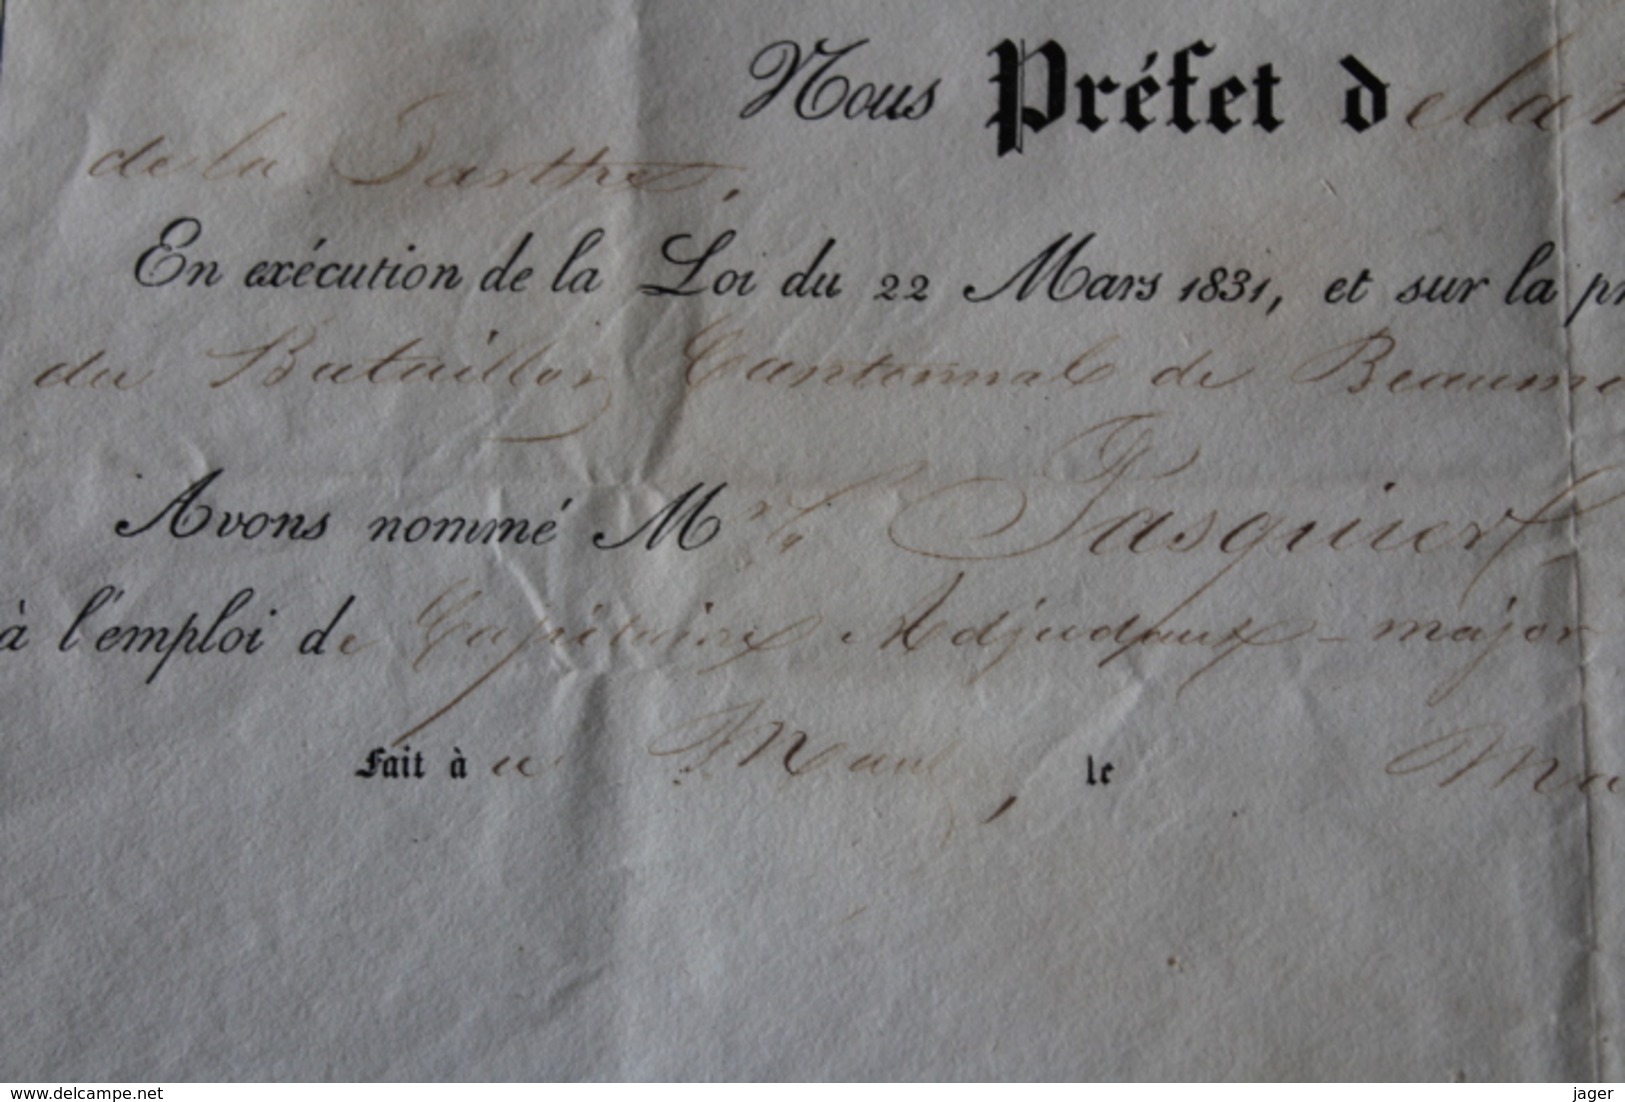 Nous Préfet de la
de la Sarthe,
En exécution de la Loi du 22 Mars 1831, et sur la pr
du Bataillon Cantonnal de Beaumo
Avons nommé M Pasquier
à l'emploi de Capitaine Adjudant-major
Fait à au Mans, le Ma
delcampe.net
jager